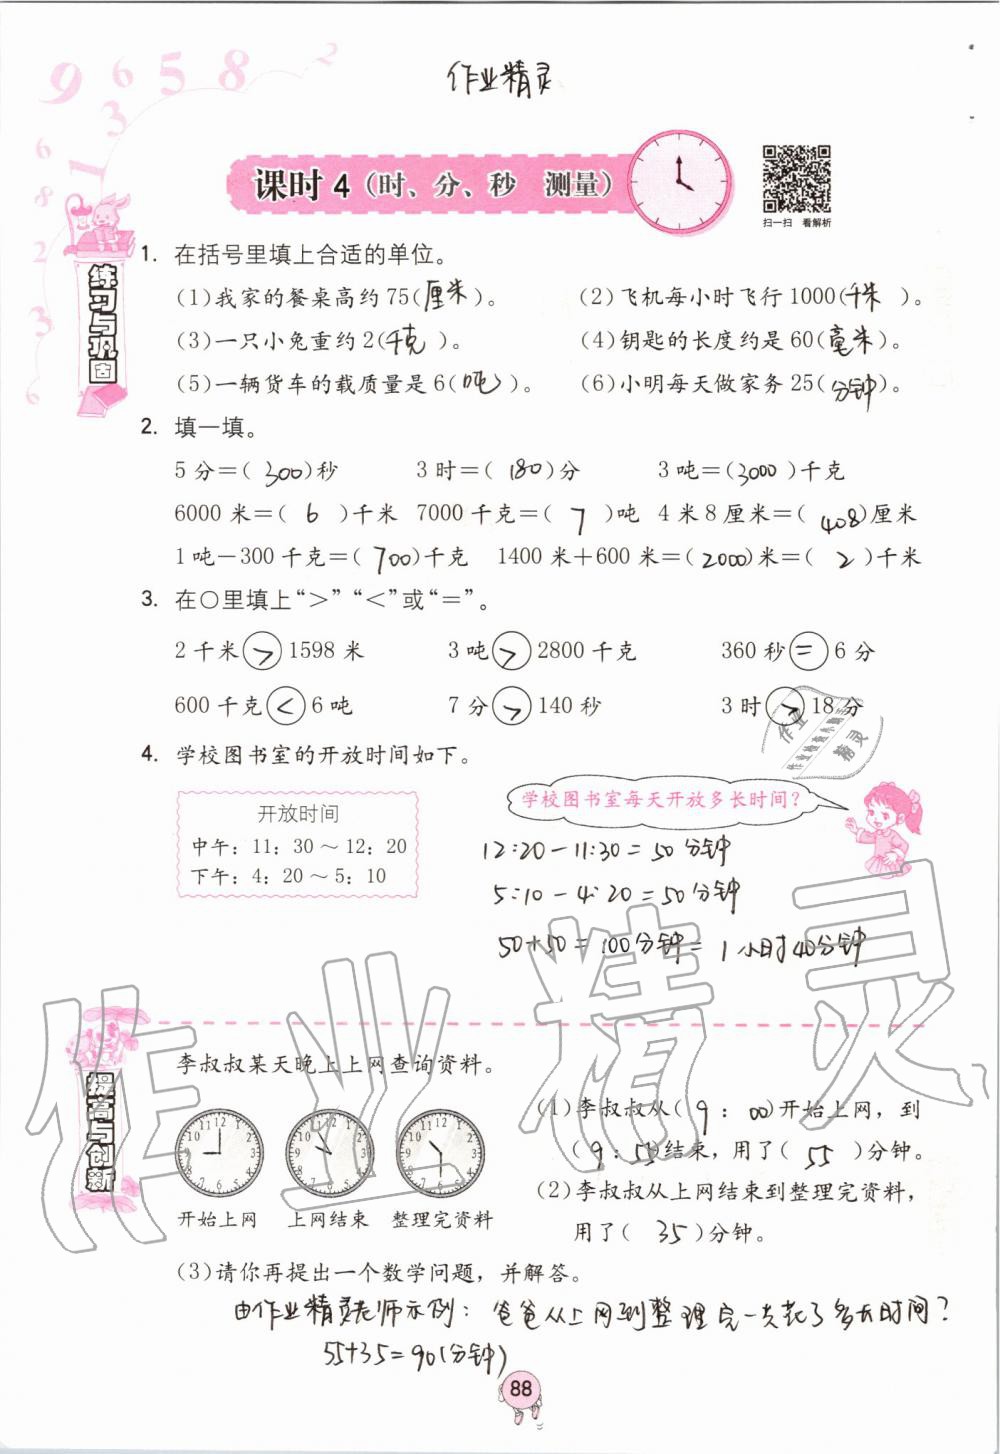 作业精灵
课时 4（时、分、秒 测量）
扫一扫 看解析
练习与巩固
1. 在括号里填上合适的单位。
(1)我家的餐桌高约75(厘米)。 (2)飞机每小时飞行1000(千米)。
(3)一只小兔重约2(千克)。 (4)钥匙的长度约是60(毫米)。
(5)一辆货车的载质量是6(吨)。 (6)小明每天做家务25(分钟)。
2. 填一填。
5分=(300)秒 3时=(180)分 3吨=(3000)千克
6000米=(6)千米 7000千克=(7)吨 4米8厘米=(408)厘米
1吨－300千克=(700)千克 1400米＋600米=(2000)米=(2)千米
3. 在○里填上“>”“<”或“=”。
2千米>1598米 3吨>2800千克 360秒=6分
600千克<6吨 7分>140秒 3时>18分
4. 学校图书室的开放时间如下。
开放时间
中午：11：30～12：20
下午：4：20～5：10
学校图书室每天开放多长时间？
12:20－11:30＝50分钟
5:10－4:20＝50分钟
50+50＝100分钟＝1小时40分钟
作业精灵
提高与创新
李叔叔某天晚上上网查询资料。
开始上网 上网结束 整理完资料
(1)李叔叔从(9：00)开始上网，到
(9：55)结束，用了(55)分钟。
(2)李叔叔从上网结束到整理完资料，
用了(35)分钟。
(3)请你再提出一个数学问题，并解答。
由作业精灵老师示例：爸爸从上网到整理完一共花了多长时间？
55+35=90(分钟)
88